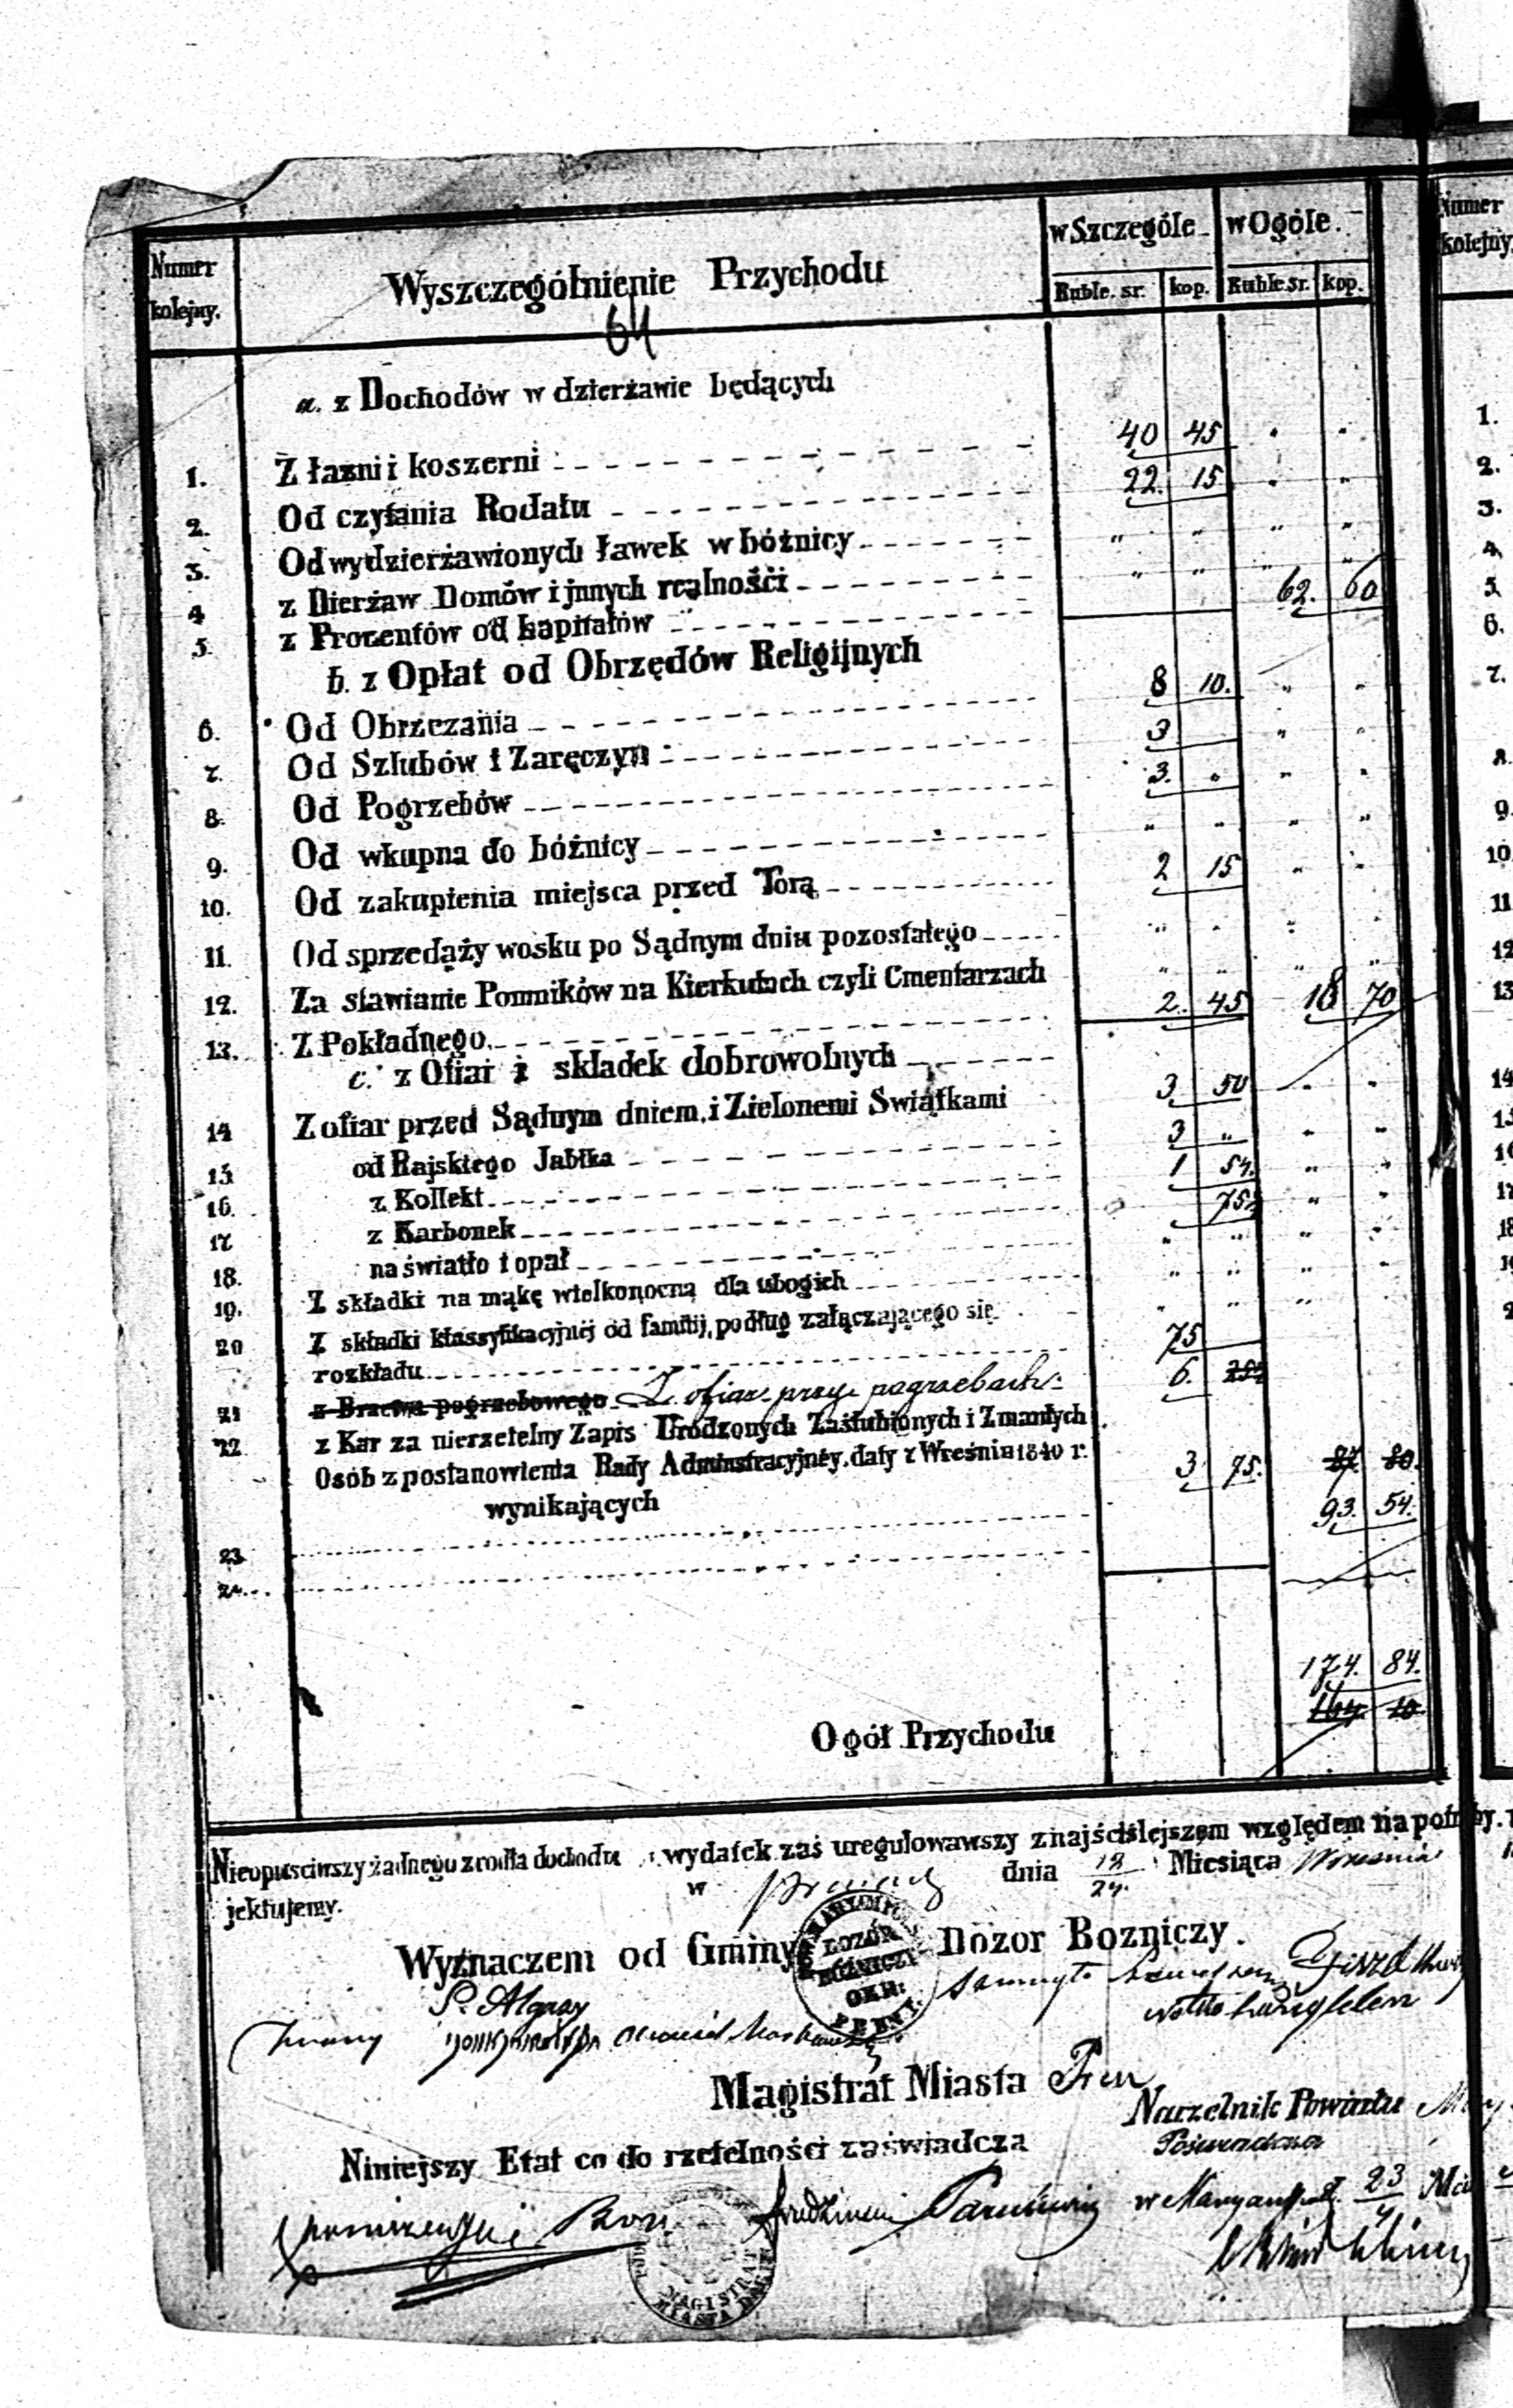 Numer kolejny.
Wyszczególnienie Przychodu
w Szczególe
w Ogóle.
Ruble. sr. kop. Ruble sr. kop.
64
a. z Dochodów w dzierżawie będących
1. Z łaźni i koszerni 40 45 " "
2. Od czytania Rodału 22. 15 " "
3. Od wydzierżawionych ławek w bóżnicy " " " "
4 z Dierżaw Domów i jnnych realnośći " " " "
5. z Procentów od kapitałów 62. 60
b. z Opłat od Obrzędów Religijnych
6. Od Obrzezania 8 10. " "
7. Od Szlubów i Zaręczyn 3 "
8. Od Pogrzebów 3. " " "
9. Od wkupna do bóżnicy " " " "
10. Od zakupienia miejsca przed Torą 2 15 " "
11. Od sprzedaży wosku po Sądnym dniu pozostałego " " " "
12. Za stawianie Pomników na Kierkutach czyli Cmentarzach " " " "
13. Z Pokładnego 2. 45 18 70
c. z Ofiar i składek dobrowolnych
14 Z ofiar przed Sądnym dniem, i Zielonemi Swiątkami 3 50 " "
15 od Rajskiego Jabłka 3 " " "
16. z Kollekt 1 54. " "
17 z Karbonek 75½ " "
18. na światło i opał " " " "
19. Z składki na mąkę wielkonocną dla ubogich " " " "
20 Z składki klassyfikacyjnéj od familij, podług załączającego się " " "
rozkładu 75
21 z Bractwa pogrzebowego Z ofiar przy pogrzebach 6.
22 z Kar za nierzetelny Zapis Urodzonych Zaślubionych i Zmarłych
Osób z postanowienia Rady Administracyjnéy, daty z Wreśnia 1840 r. 3 75. 87 80.
wynikających 93. 54.
23
24
174. 84.
Ogół Przychodu 164. 10
Nieopuściwszy żadnego zrodła dochodu wydatek zaś uregulowawszy z najściślejszem względem na potrzby.
jektujemy. w dnia 12/24. Miesiąca Wrzesnia
Wyznaczeni od Gminy Dozor Bozniczy.
DOZÓR BÓŻNICZY OKR: PRENY.
Magistrat Miasta Pren
Naczelnik Powiatu
Poświadcza
Niniejszy Etat co do rzetelności zaświadcza
MAGISTRAT MIASTA
Numer
kolejny
1.
2.
3.
4.
5.
6.
7.
8.
9.
10.
11
12
13
14
15
16
17
18